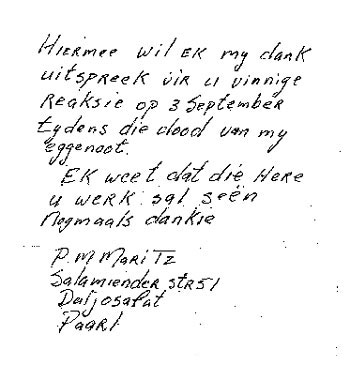 Hiermee wil ek my dank
uitspreek vir u vinnige
reaksie op 3 September
tydens die dood van my
eggenoot.
Ek weet dat die Here
u werk sal seën
Nogmaals dankie
P. M Maritz
Salamiender str 51
Daljosafat
Paarl